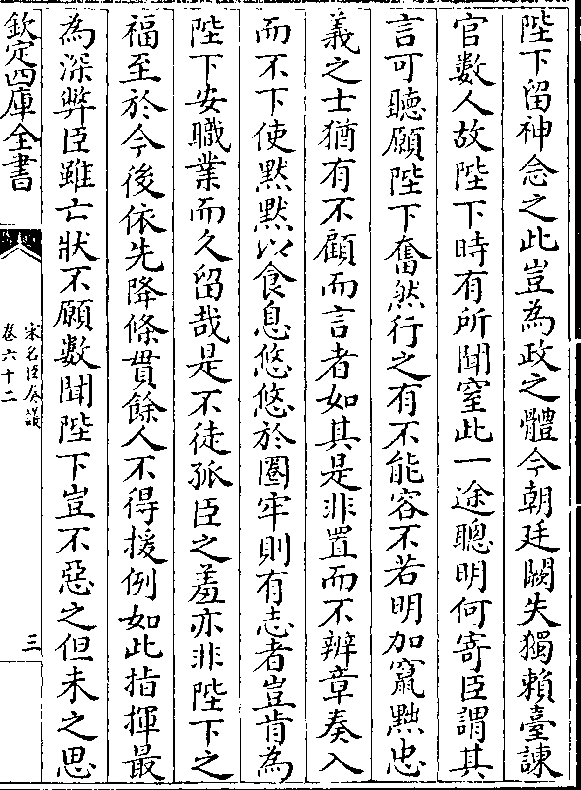 陛下留神念之此豈為政之體今朝廷闕失獨賴臺諫
官數人故陛下時有所聞窒此一途聰明何寄臣謂其
言可聽願陛下奮然行之有不能容不若明加竄黜忠
義之士猶有不顧而言者如其是非置而不辨章奏入
而不下使黙黙以食息悠悠於圏牢則有志者豈肯為
陛下安職業而久留哉是不徒孤臣之羞亦非陛下之
福至於今後依先降條貫餘人不得援例如此指揮最
為深弊臣雖亡狀不願數聞陛下豈不惡之但未之思
欽定四庫全書
宋名臣奏議
卷六十二
三